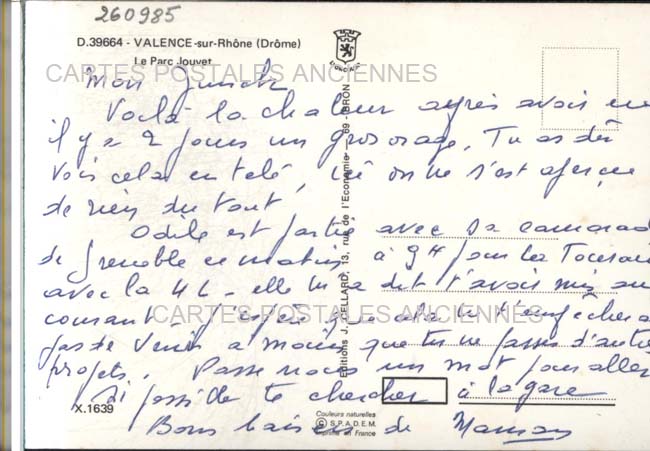 260985
D.39664 - VALENCE-sur-Rhône (Drôme)
Le Parc Jouvet
CARTES POSTALES ANCIENNES
Mon
Voilà la chaleur après avoir eu
il y a 2 jours un gros orage. Tu as dû
voir cela en télé, ici on ne s'est aperçu
de rien du tout.
Odile est partie avec sa camarade
de Grenoble ce matin à 9H pour la Touraine
avec la 4L - elle m'a dit t'avoir mis au
courant - J'espère que cela ne t'empêchera
pas de venir à moins que tu ne fasses d'autres
projets. Passe nous un mot pour aller
si possible te chercher à la gare
Bons baisers de Maman
CARTES POSTALES ANCIENNES
X.1639
Editions J. CELLARD, 13, rue de l'Economie — 69 - BRON
Couleurs naturelles
© S.P.A.D.E.M.
Imprimé en France